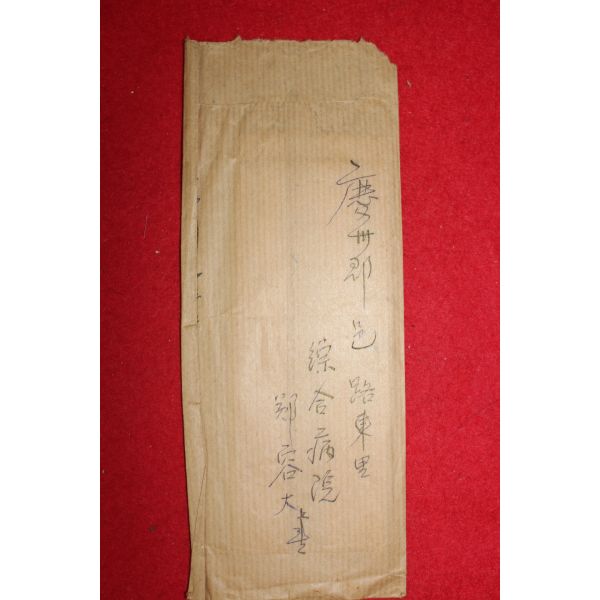 慶州郡邑 路東里
綜合病院
鄭容大